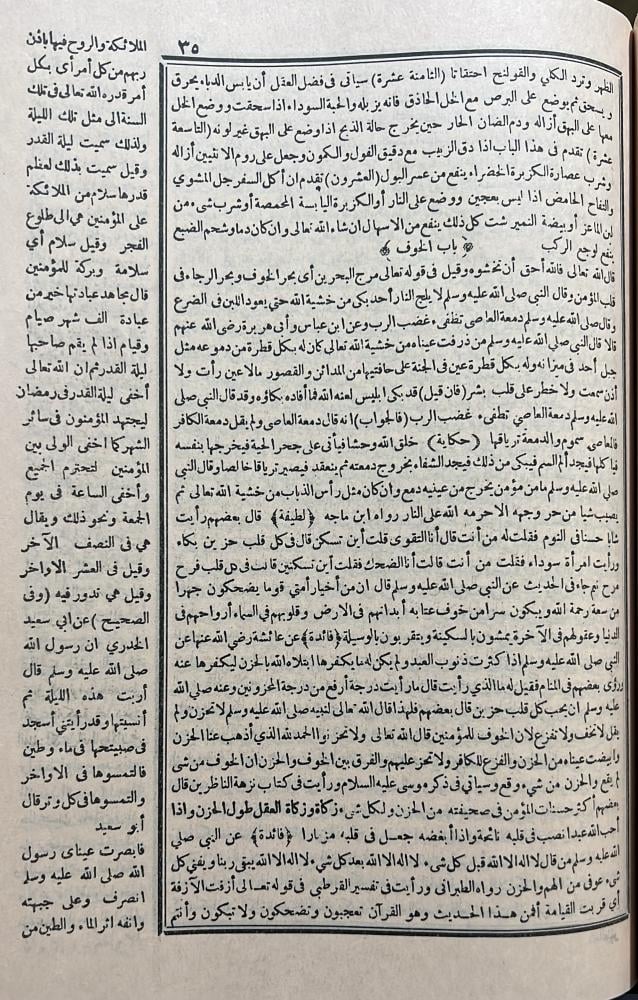 ٣٥
الظهر وترد الكلى والقولنج احتقانا (الثامنة عشرة) سيأتى فى فضل العقل أن يابس الدباء يحرق
ويسحق ثم يوضع على البرص مع الخل الحاذق فانه يزيله والحبة السوداء اذا سحقت ووضع الخل
معها على البهق أزاله ودم الضان الحار حين يخرج حالة الذبح اذا وضع على البهق غير لونه (التاسعة
عشرة) تقدم فى هذا الباب اذا دق الزبيب مع دقيق الفول والكمون وجعل على روم الانثيين أزاله
وشرب عصارة الكزبرة الخضراء ينفع من عسر البول (العشرون) تقدم ان أكل السفرجل المشوى
والتفاح الحامض اذا لبس بعجين ووضع على النار أو الكزبرة اليابسة المحمصة أو شرب شىء من
لبن الماعز أو بيضة النميرشت كل ذلك ينفع من الاسهال ان شاء الله تعالى وان كان دما وشحم الضبع
ينفع لوجع الركب
﴿ باب الخوف ﴾
قال الله تعالى فالله أحق أن تخشوه وقيل فى قوله تعالى مرج البحرين أى بحر الخوف وبحر الرجاء فى
قلب المؤمن وقال النبى صلى الله عليه وسلم لا يلج النار أحد بكى من خشية الله حتى يعود اللبن فى الضرع
وقال صلى الله عليه وسلم دمعة العاصى تطفىء غضب الرب وعن ابن عباس وأبى هريرة رضى الله عنهم
قالا قال النبى صلى الله عليه وسلم من ذرفت عيناه من خشية الله تعالى كان له بكل قطرة من دموعه مثل
جبل أحد فى ميزانه وله بكل قطرة عين فى الجنة على حافتيها من المدائن والقصور ما لا عين رأت ولا
أذن سمعت ولا خطر على قلب بشر (فان قيل) قد بكى ابليس لعنه الله فما أفاده بكاؤه وقد قال النبى صلى
الله عليه وسلم دمعة العاصى تطفىء غضب الرب (فالجواب) انه قال دمعة العاصى ولم يقل دمعة الكافر
فالعاصى سموم والدمعة ترياقها (حكاية) خلق الله وحشا فيأتى على جحر الحية فيخرجها بنفسه
فيأكلها فيجد ألم السم فيبكى من ذلك فيجد الشفاء بخروج دمعته ثم ينعقد فيصير ترياقا خالصا وقال النبى
صلى الله عليه وسلم ما من مؤمن يخرج من عينيه دمع وان كان مثل رأس الذباب من خشية الله تعالى ثم
يصيب شيا من حر وجهه الا حرمه الله على النار رواه ابن ماجه ﴿لطيفة﴾ قال بعضهم رأيت
شابا حسنا فى النوم فقلت له من أنت قال أنا التقوى قلت أين تسكن قال فى كل قلب حزين بكاء
ورأيت امرأة سوداء فقلت من أنت قالت أنا الضحك فقلت أين تسكنين قالت فى كل قلب فرح
مرح ثم جاء فى الحديث عن النبى صلى الله عليه وسلم قال ان من أخيار أمتى قوما يضحكون جهرا
من سعة رحمة الله ويبكون سرا من خوف عذابه أبدانهم فى الارض وقلوبهم فى السماء أرواحهم فى
الدنيا وعقولهم فى الآخرة يمشون بالسكينة ويتقربون بالوسيلة ﴿فائدة﴾ عن عائشة رضى الله عنها عن
النبى صلى الله عليه وسلم اذا كثرت ذنوب العبد ولم يكن له ما يكفرها ابتلاه الله بالحزن ليكفرها عنه
ورؤى بعضهم فى المنام فقيل له ما الذى رأيت قال ما رأيت درجة أرفع من درجة المحزونين وعنه صلى الله
عليه وسلم ان يحب كل قلب حزين قال بعضهم فلهذا قال الله تعالى لنبيه صلى الله عليه وسلم لا تحزن ولم
يقل لا تخف ولا تفزع لان الخوف للمؤمنين قال الله تعالى ولا تحزنوا الحمد لله الذى أذهب عنا الحزن
وابيضت عيناه من الحزن والفزع للكافر ولا تحزن عليهم والفرق بين الخوف والحزن ان الخوف من شى
لم يقع والحزن من شىء وقع وسيأتى فى ذكر موسى عليه السلام ورأيت فى كتاب نزهة الناظرين قال
بعضهم أكثر حسنات المؤمن فى صحيفته من الحزن ولكل شىء زكاة وزكاة العقل طول الحزن واذا
أحب الله عبدا نصب فى قلبه نائحة واذا أبغضه جعل فى قلبه مزمارا ﴿فائدة﴾ عن النبى صلى
الله عليه وسلم من قال لا اله الا الله قبل كل شىء لا اله الا الله بعد كل شىء لا اله الا الله يبقى ربنا ويفنى كل
شىء عوفى من الهم والحزن رواه الطبرانى ورأيت فى تفسير القرطبى فى قوله تعالى أزفت الآزفة
أى قربت القيامة أفمن هذا الحديث وهو القرآن تعجبون وتضحكون ولا تبكون وأنتم
الملائكة والروح فيها باذن
ربهم من كل أمر أى بكل
أمر قدره الله تعالى فى تلك
السنة الى مثل تلك الليلة
ولذلك سميت ليلة القدر
وقيل سميت بذلك لعظم
قدرها سلام من الملائكة
على المؤمنين هى الى طلوع
الفجر وقيل سلام أى
سلامة وبركة للمؤمنين
قال مجاهد عبادتها خير من
عبادة الف شهر صيام
وقيام اذا لم يقم صاحبها
ليلة القدر ثم ان الله تعالى
أخفى ليلة القدر فى رمضان
ليجتهد المؤمنون فى سائر
الشهر كما اخفى الولى بين
المؤمنين لتحترم الجميع
وأخفى الساعة فى يوم
الجمعة ونحو ذلك ويقال
هى فى النصف الآخر
وقيل فى العشر الاواخر
وقيل هى تدور فيه (وفى
الصحيح) عن ابى سعيد
الخدرى ان رسول الله
صلى الله عليه وسلم قال
أريت هذه الليلة ثم
أنسيتها وقد رأيتنى أسجد
فى صبيحتها فى ماء وطين
فالتمسوها فى الاواخر
والتمسوها فى كل وتر قال
أبو سعيد
فابصرت عيناى رسول
الله صلى الله عليه وسلم
انصرف وعلى جبهته
وانفه اثر الماء والطين من